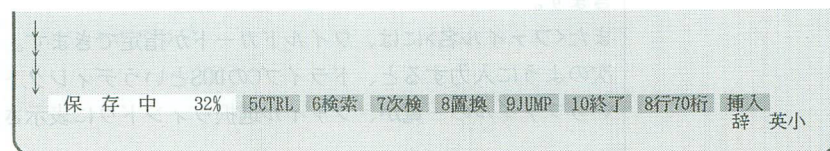 ↓
↓
↓
↓
保存中 32% 5CTRL 6検索 7次検 8置換 9JUMP 10終了 8行70桁 挿入
辞 英小